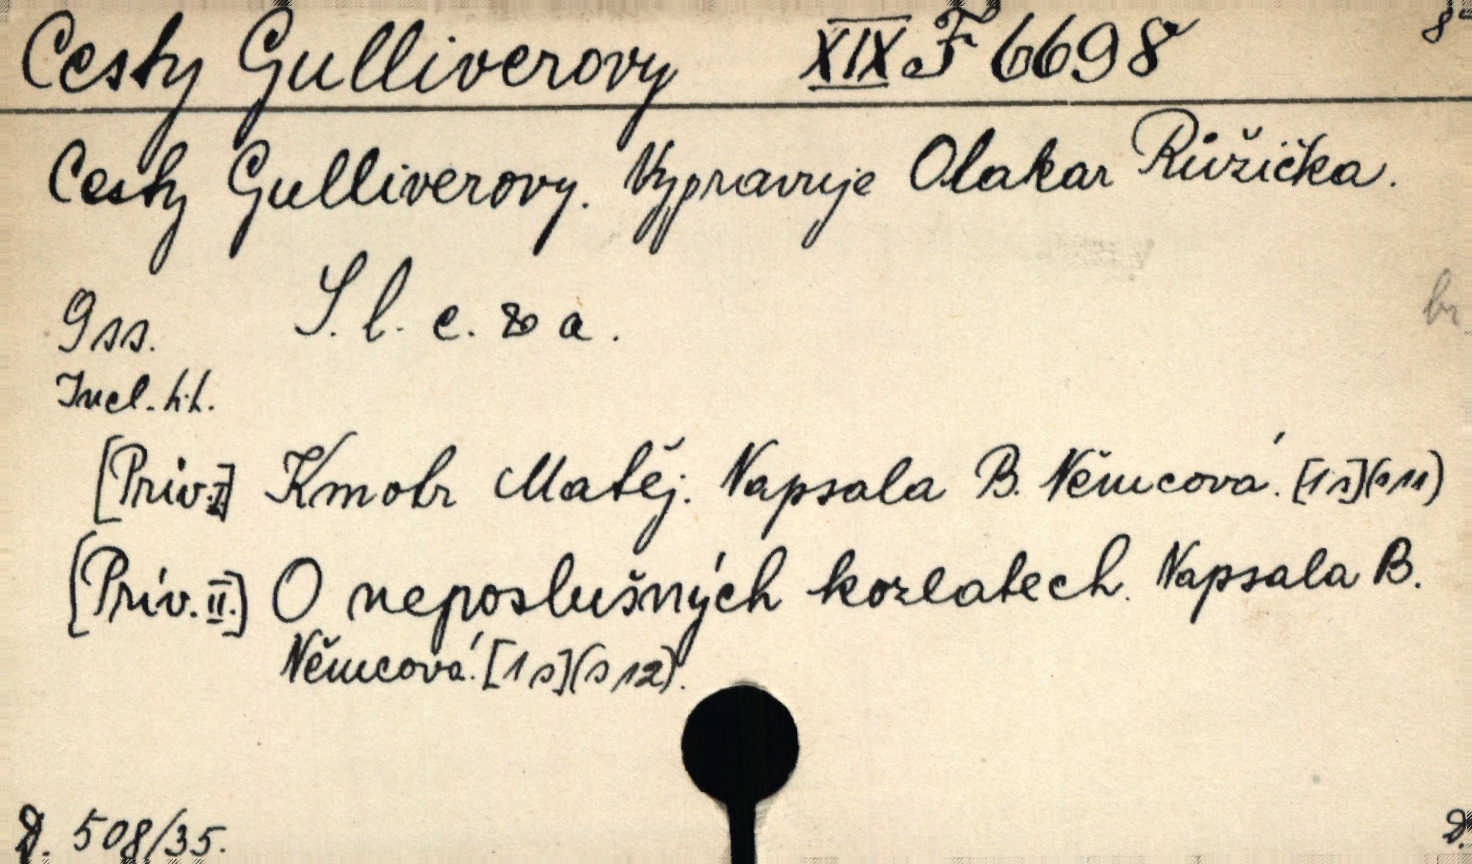 Cesty Gulliverovy XIX F 6698 8°
Cesty Gulliverovy. Vypravuje Otakar Růžička.
9 ss. S. l. e. & a. br
Incl. h. l.
[Priv. I] Kmotr Matěj. Napsala B. Němcová. [1 s] (s 11)
[Priv. II.] O neposlušných kozlatech. Napsala B.
Němcová. [1 s] (s 12).
D. 508/35. D.